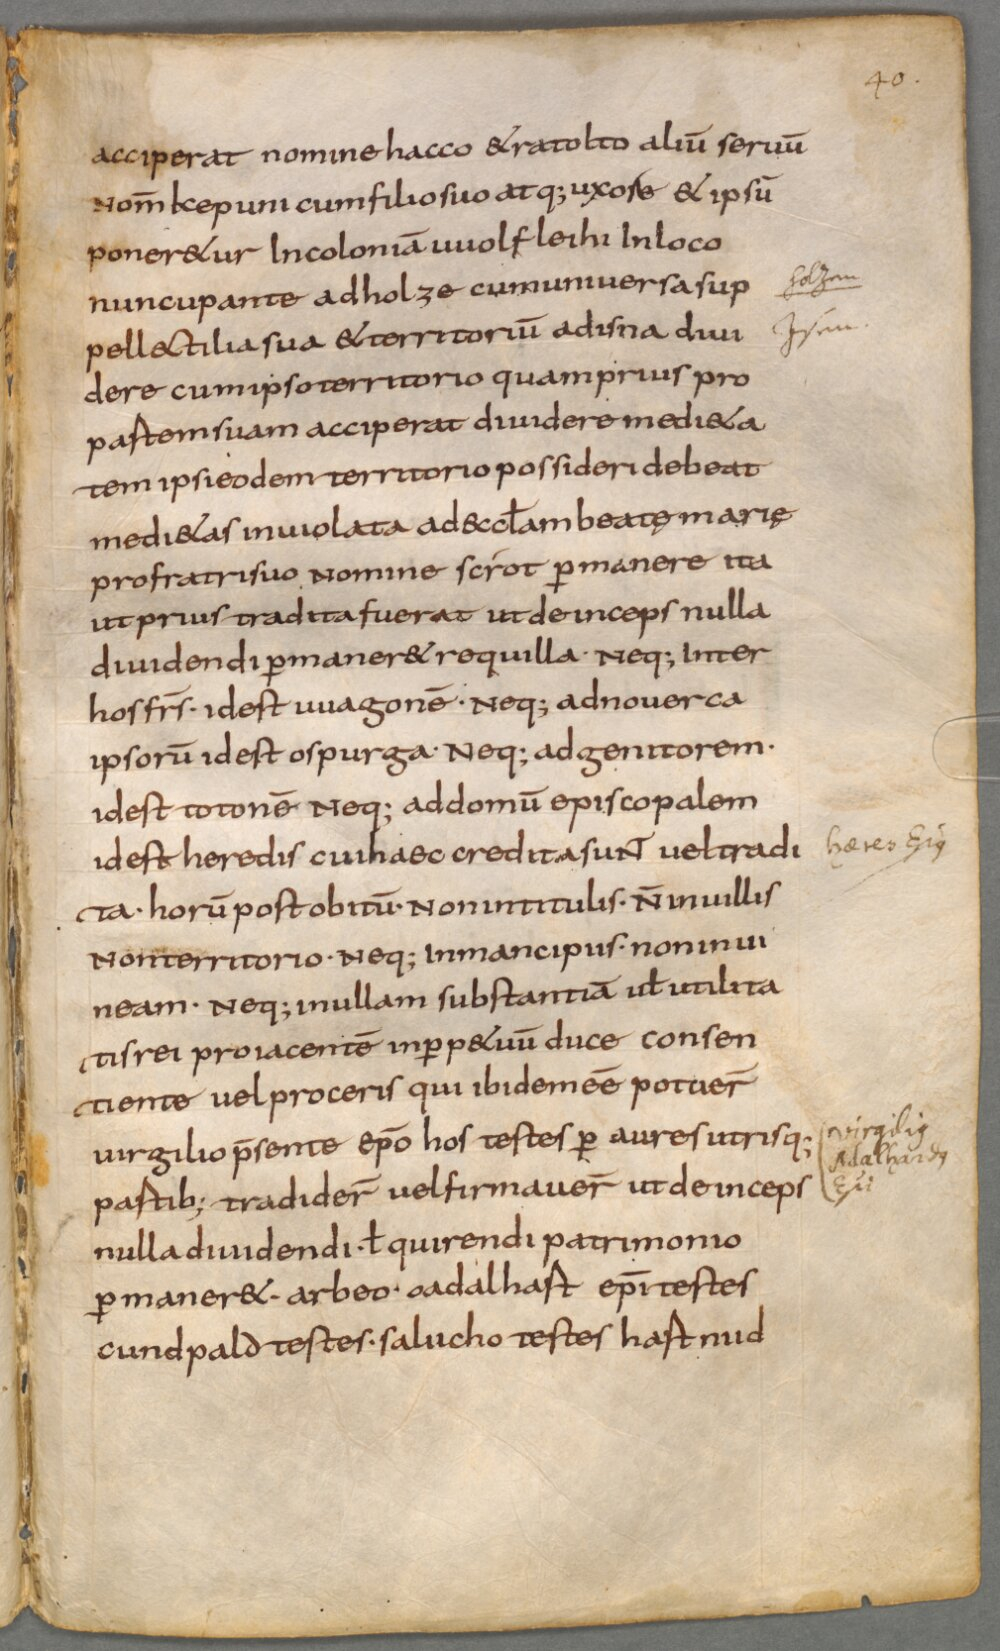 40.
acciperat nomine hacco & ratolto aliū seruū
Nom̄ kepuni cum filio suo atq; uxore & ipsū
poner&ur In coloniā uuolfleihi In loco
nuncupante adholze cum uniuersa sup
holzen
pell&tilia sua & territoriū adisna diui
Isen.
dere cum ipso territorio quam prius pro
partem suam acciperat diuidere medi&a
tem ipsi eodem territorio possideri debeat
medi&as inuiolata ad &cƚam beatę marię
pro fratri suo Nomine scrot ꝑmanere ita
ut prius tradita fuerat ut deinceps nulla
diuidendi ꝑmaner& requilla · Neq; Inter
hos fr̄s · id est uuagonē · Neq; ad nouerca
ipsorū id est ospurga · Neq; ad genitorem ·
id est totonē Neq; ad domū episcopalem
id est heredis cui haec credita suNT uel tradi
hæres Ep̄i
ta · horū post obitū · Non in titulis · N̄ in uillis
Non territorio · Neq; In mancipiis · non in ui
neam · Neq; in ullam substantiā uƚ utilita
tis rei proiacentē in ꝑp&uū duce consen
tiente uel proceris qui ibidem eē̄ potuer̄
uirgilio p̄sente ep̄o hos testes ꝑ aures utrisq;
Virgilig
Adalhardg
Ep̄i
partib; tradider̄ uel firmauer̄ ut deinceps
nulla diuidendi · ƚ quirendi patrimonio
ꝑmaner& · arbeo · oadalhart ep̄i testes
cundpald testes · salucho testes hartnud